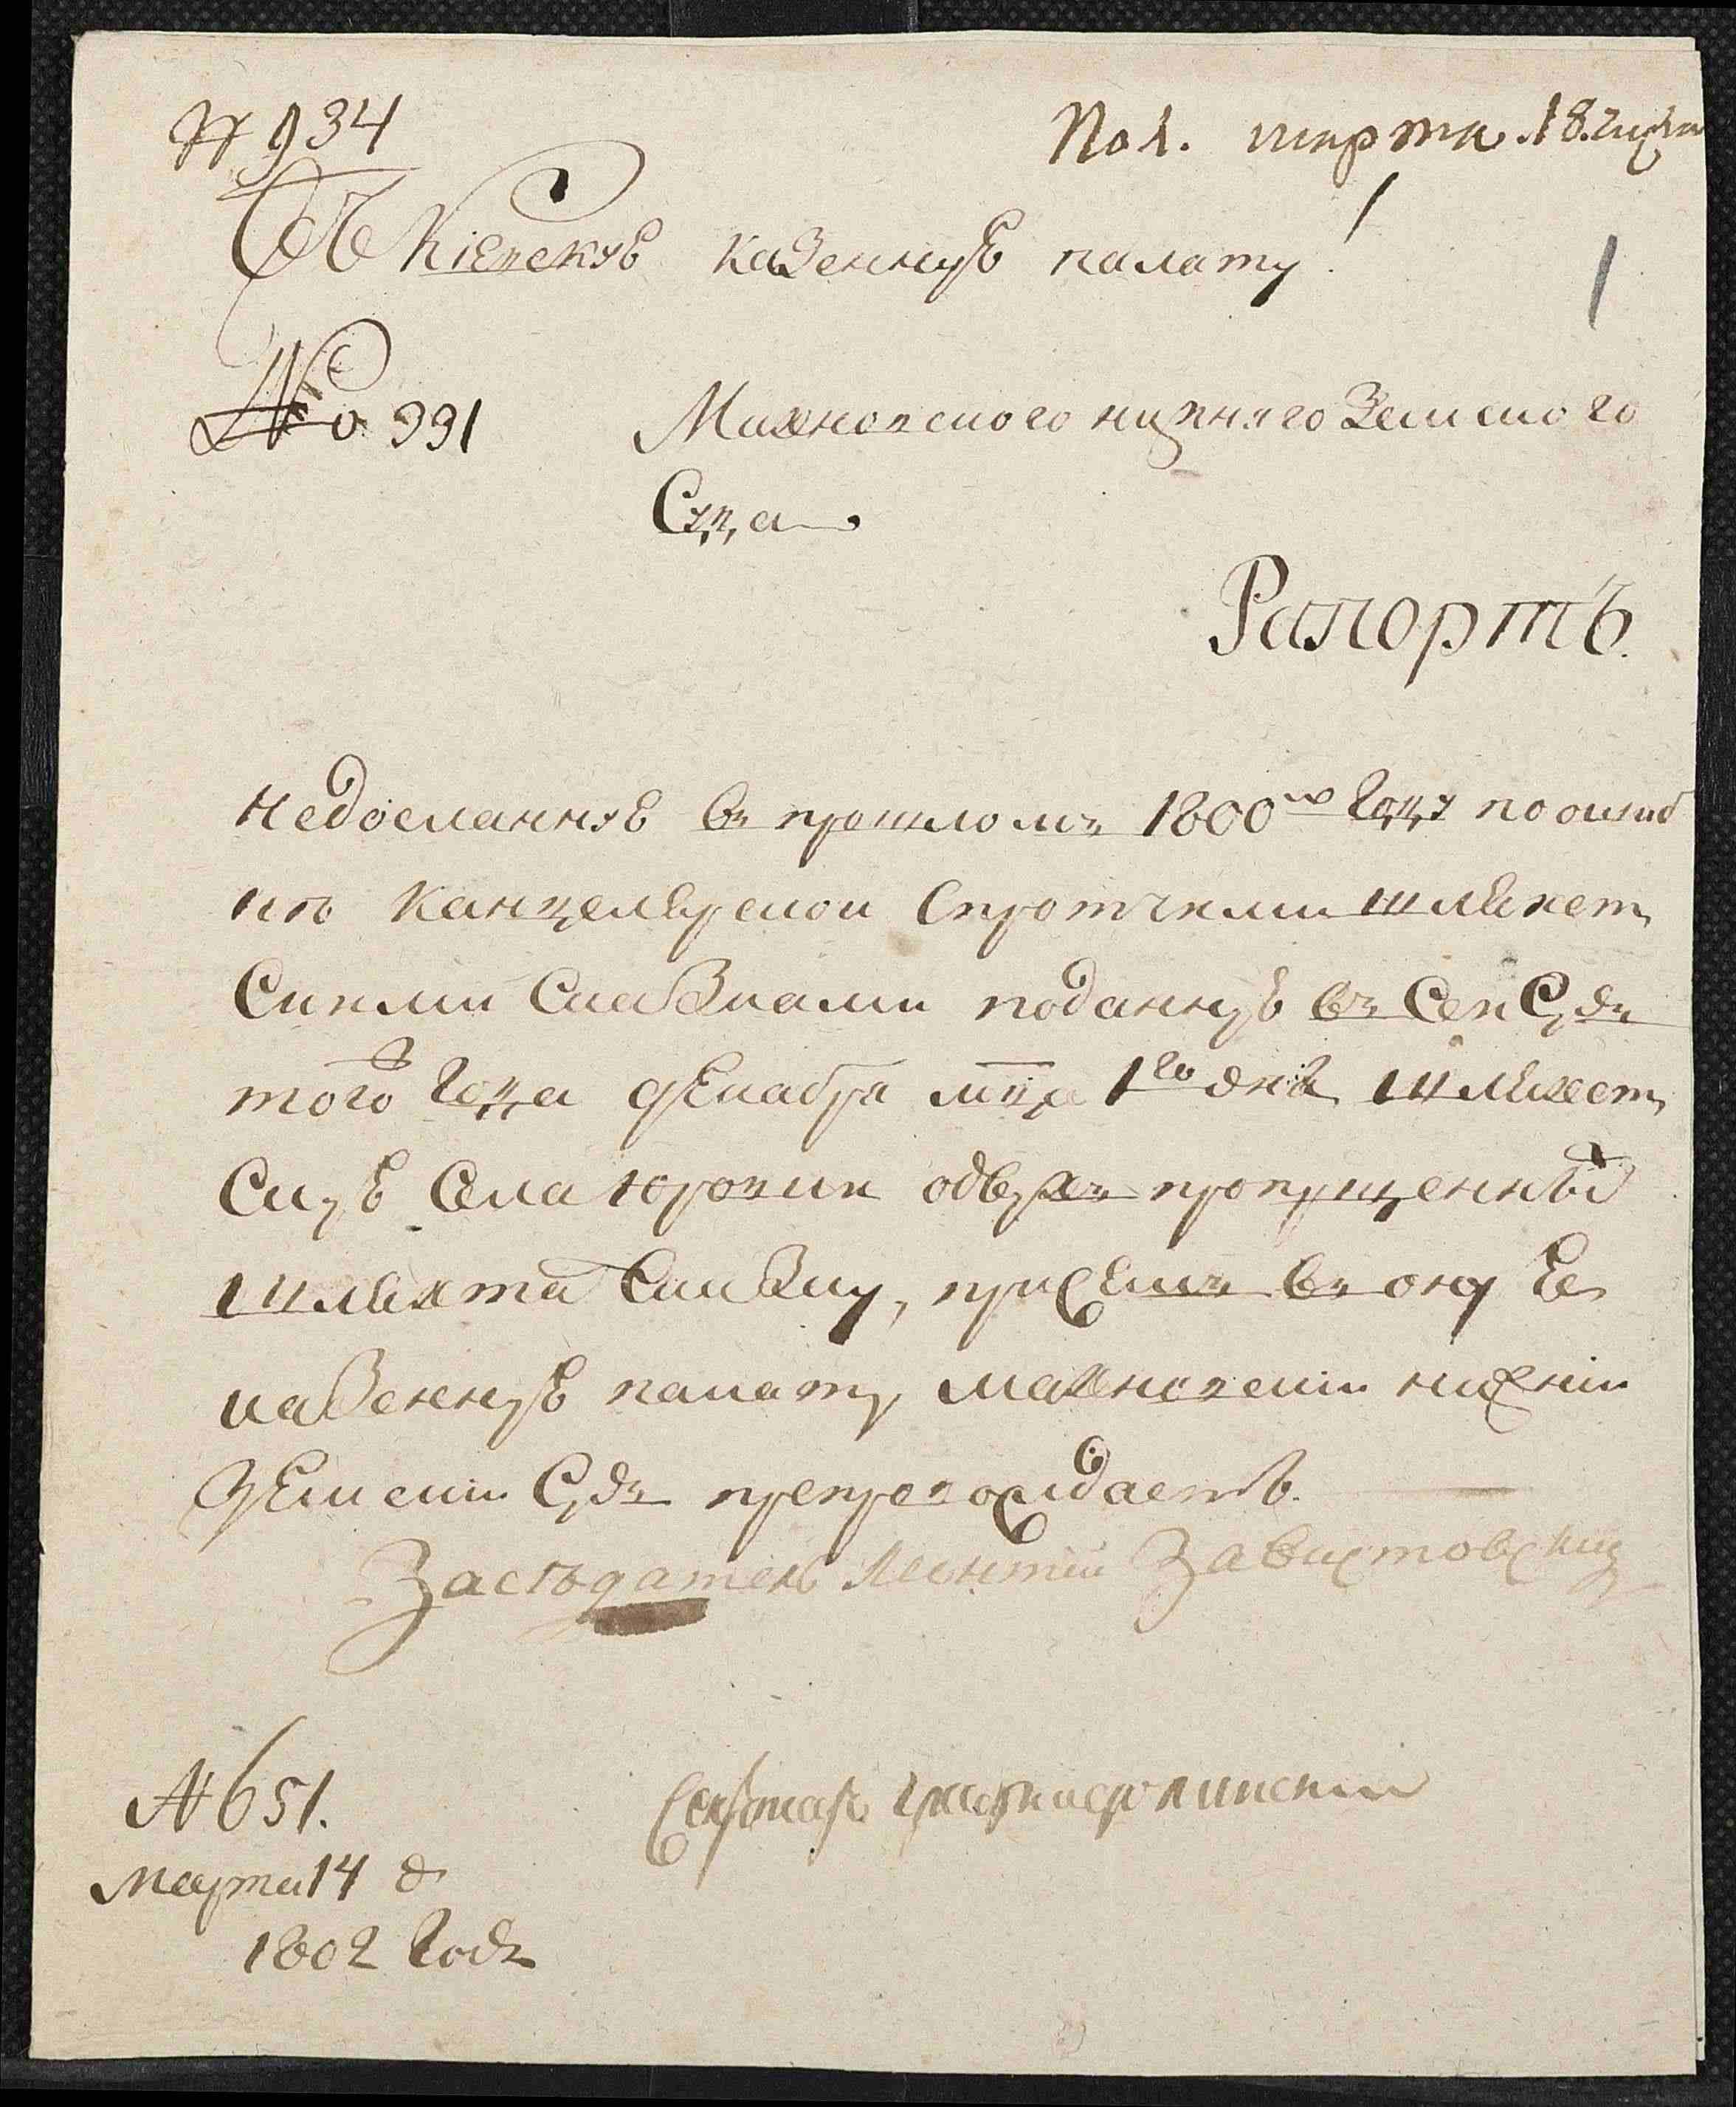 № 934
Пол. марта 18. числа
1
Въ Кіевскую казенную палату!
№ 991
Махновского нижняго Земского
Суда
Рапортъ.
Недосланную въ прошломъ 1800мъ году по ошиб
кѣ канцелярской спротчими шляхет
скими сказками поданную въ сей Судъ
того года декабря мца 1го дня шляхет
скую села Юровки одвухъ пропущенной
шляхта сказку, присемъ въ ону Ея
казенную палату махновскій нижній
земскій Судъ препровождаетъ.
Засѣдатель Леонтій Завистовский
№ 651.
Секретарь
Марта 14 д
1802 Года